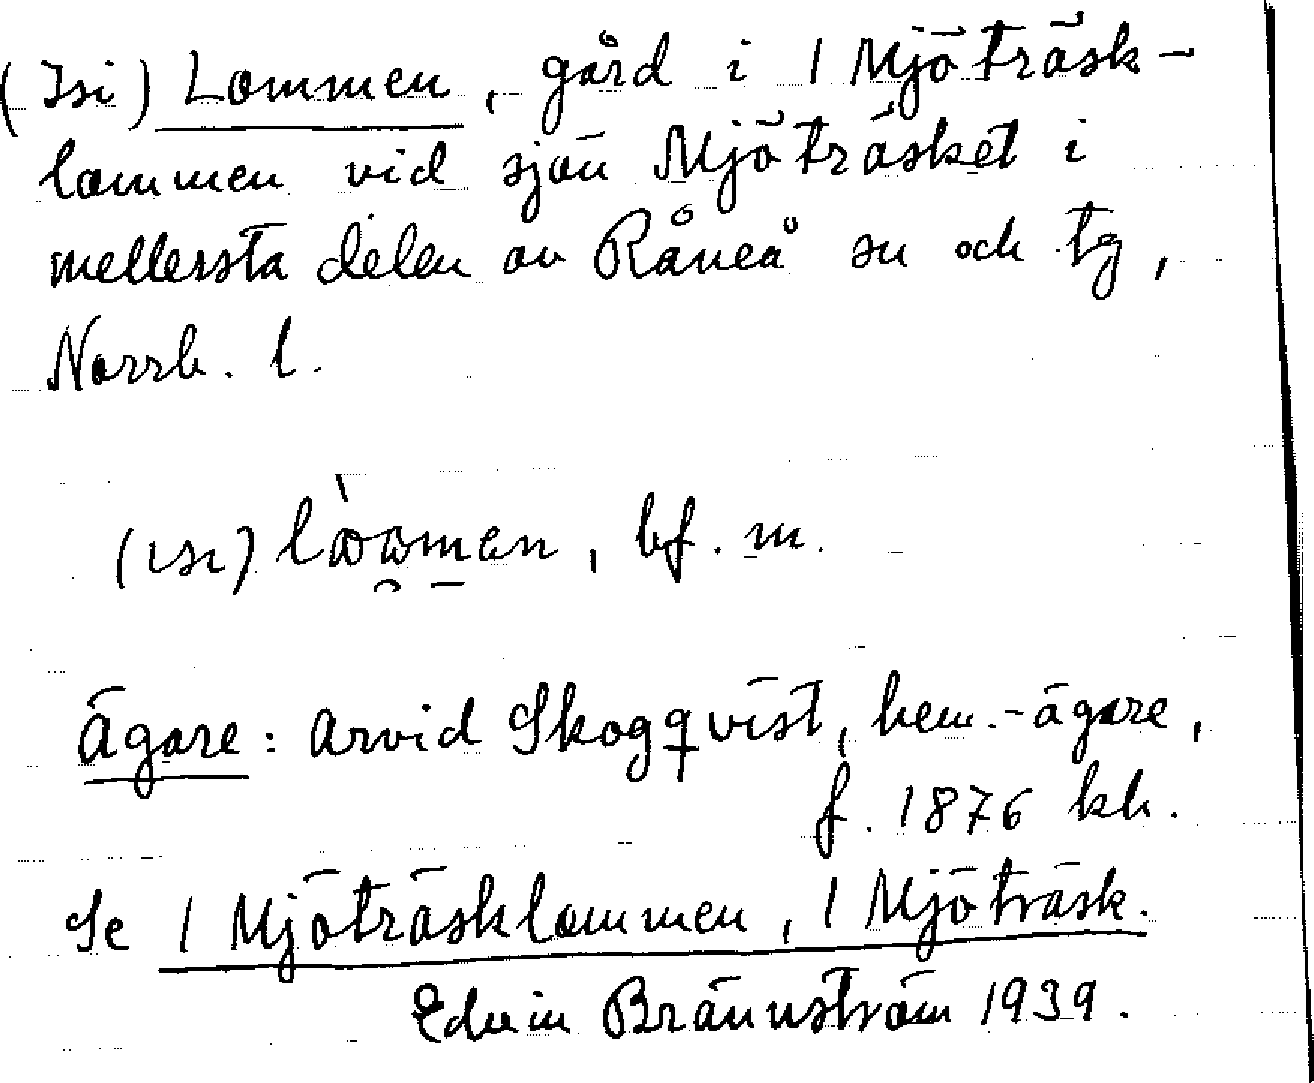 (Isi) Lommen, gård i 1 Mjöträsk-
lommen vid sjön Mjöträsket i
mellersta delen av Råneå sn och tg,
Norrb. l.
bf. m.
Ägare: Arvid Skogqvist, hem.-ägare,
f. 1876 kh.
Se 1 Mjöträsklommen, 1 Mjöträsk.
Edvin Brännström 1939.